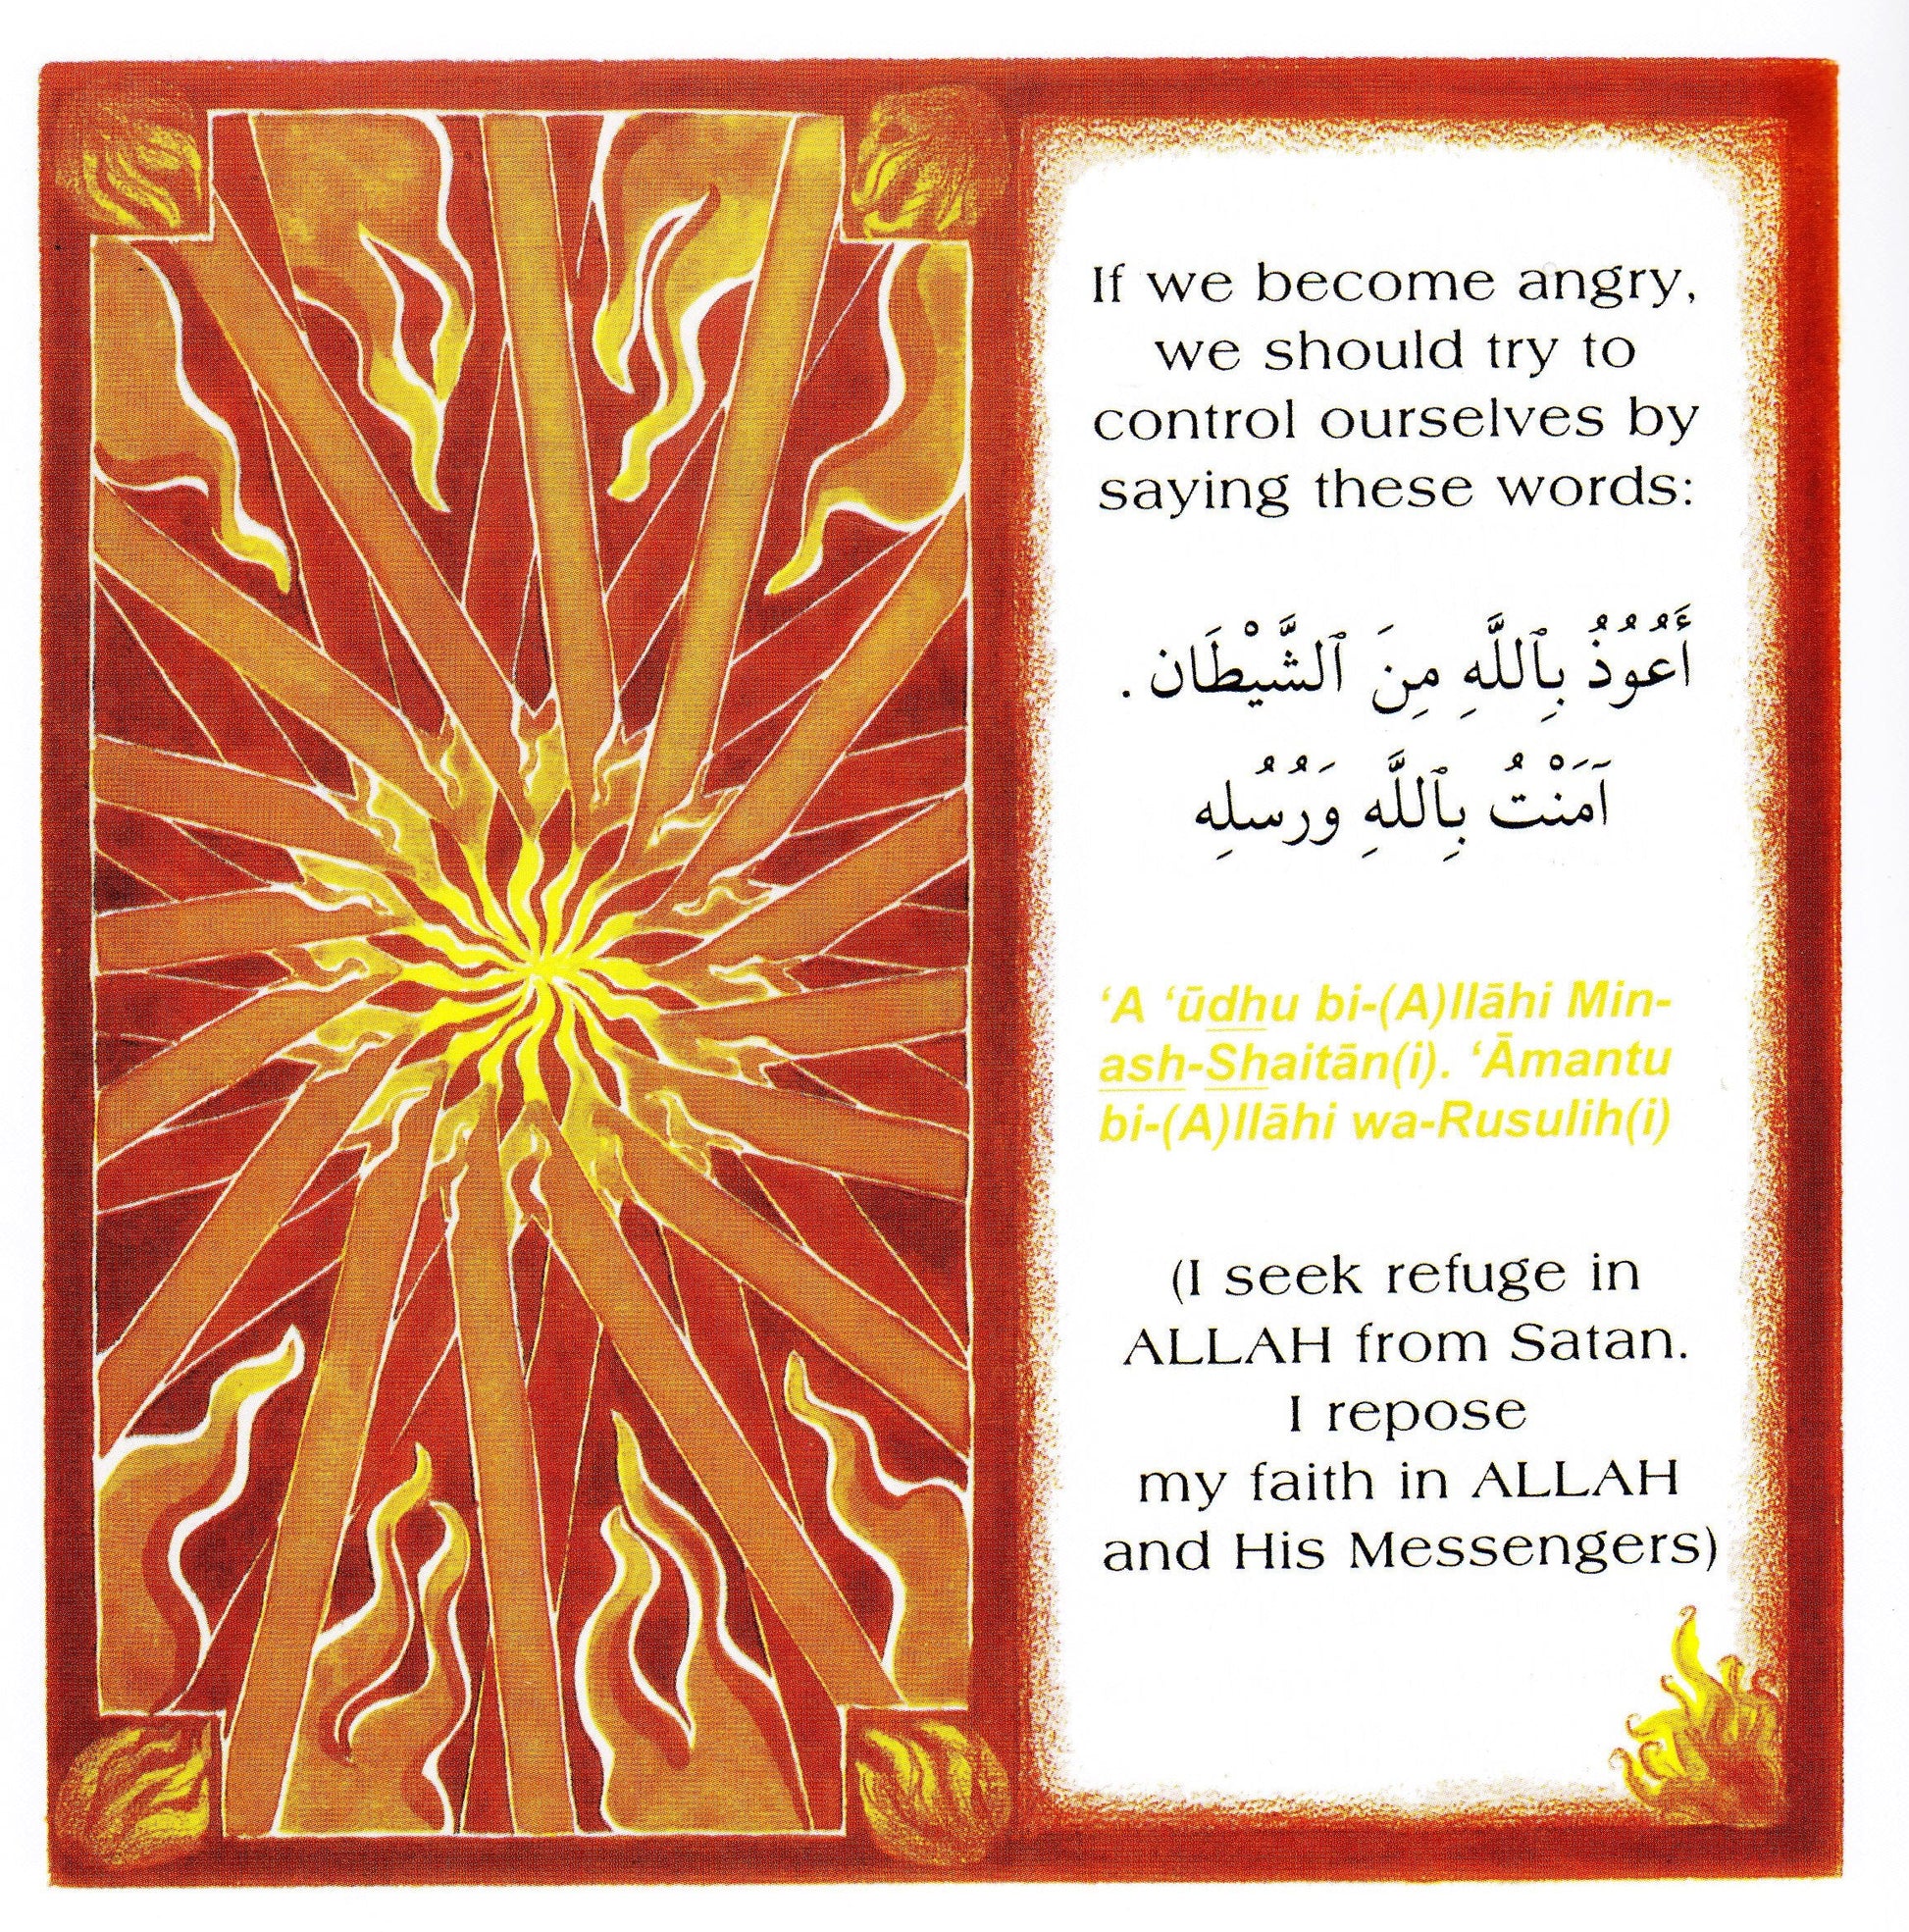 If we become angry,
we should try to
control ourselves by
saying these words:
أَعُوُذُ بِٱللَّهِ مِنَ ٱلشَّيْطَان .
آمَنْتُ بِٱللَّهِ وَرُسُلِه
‘A ‘ūdhu bi-(A)llāhi Min-
ash-Shaitān(i). ‘Āmantu
bi-(A)llāhi wa-Rusulih(i)
(I seek refuge in
ALLAH from Satan.
I repose
my faith in ALLAH
and His Messengers)